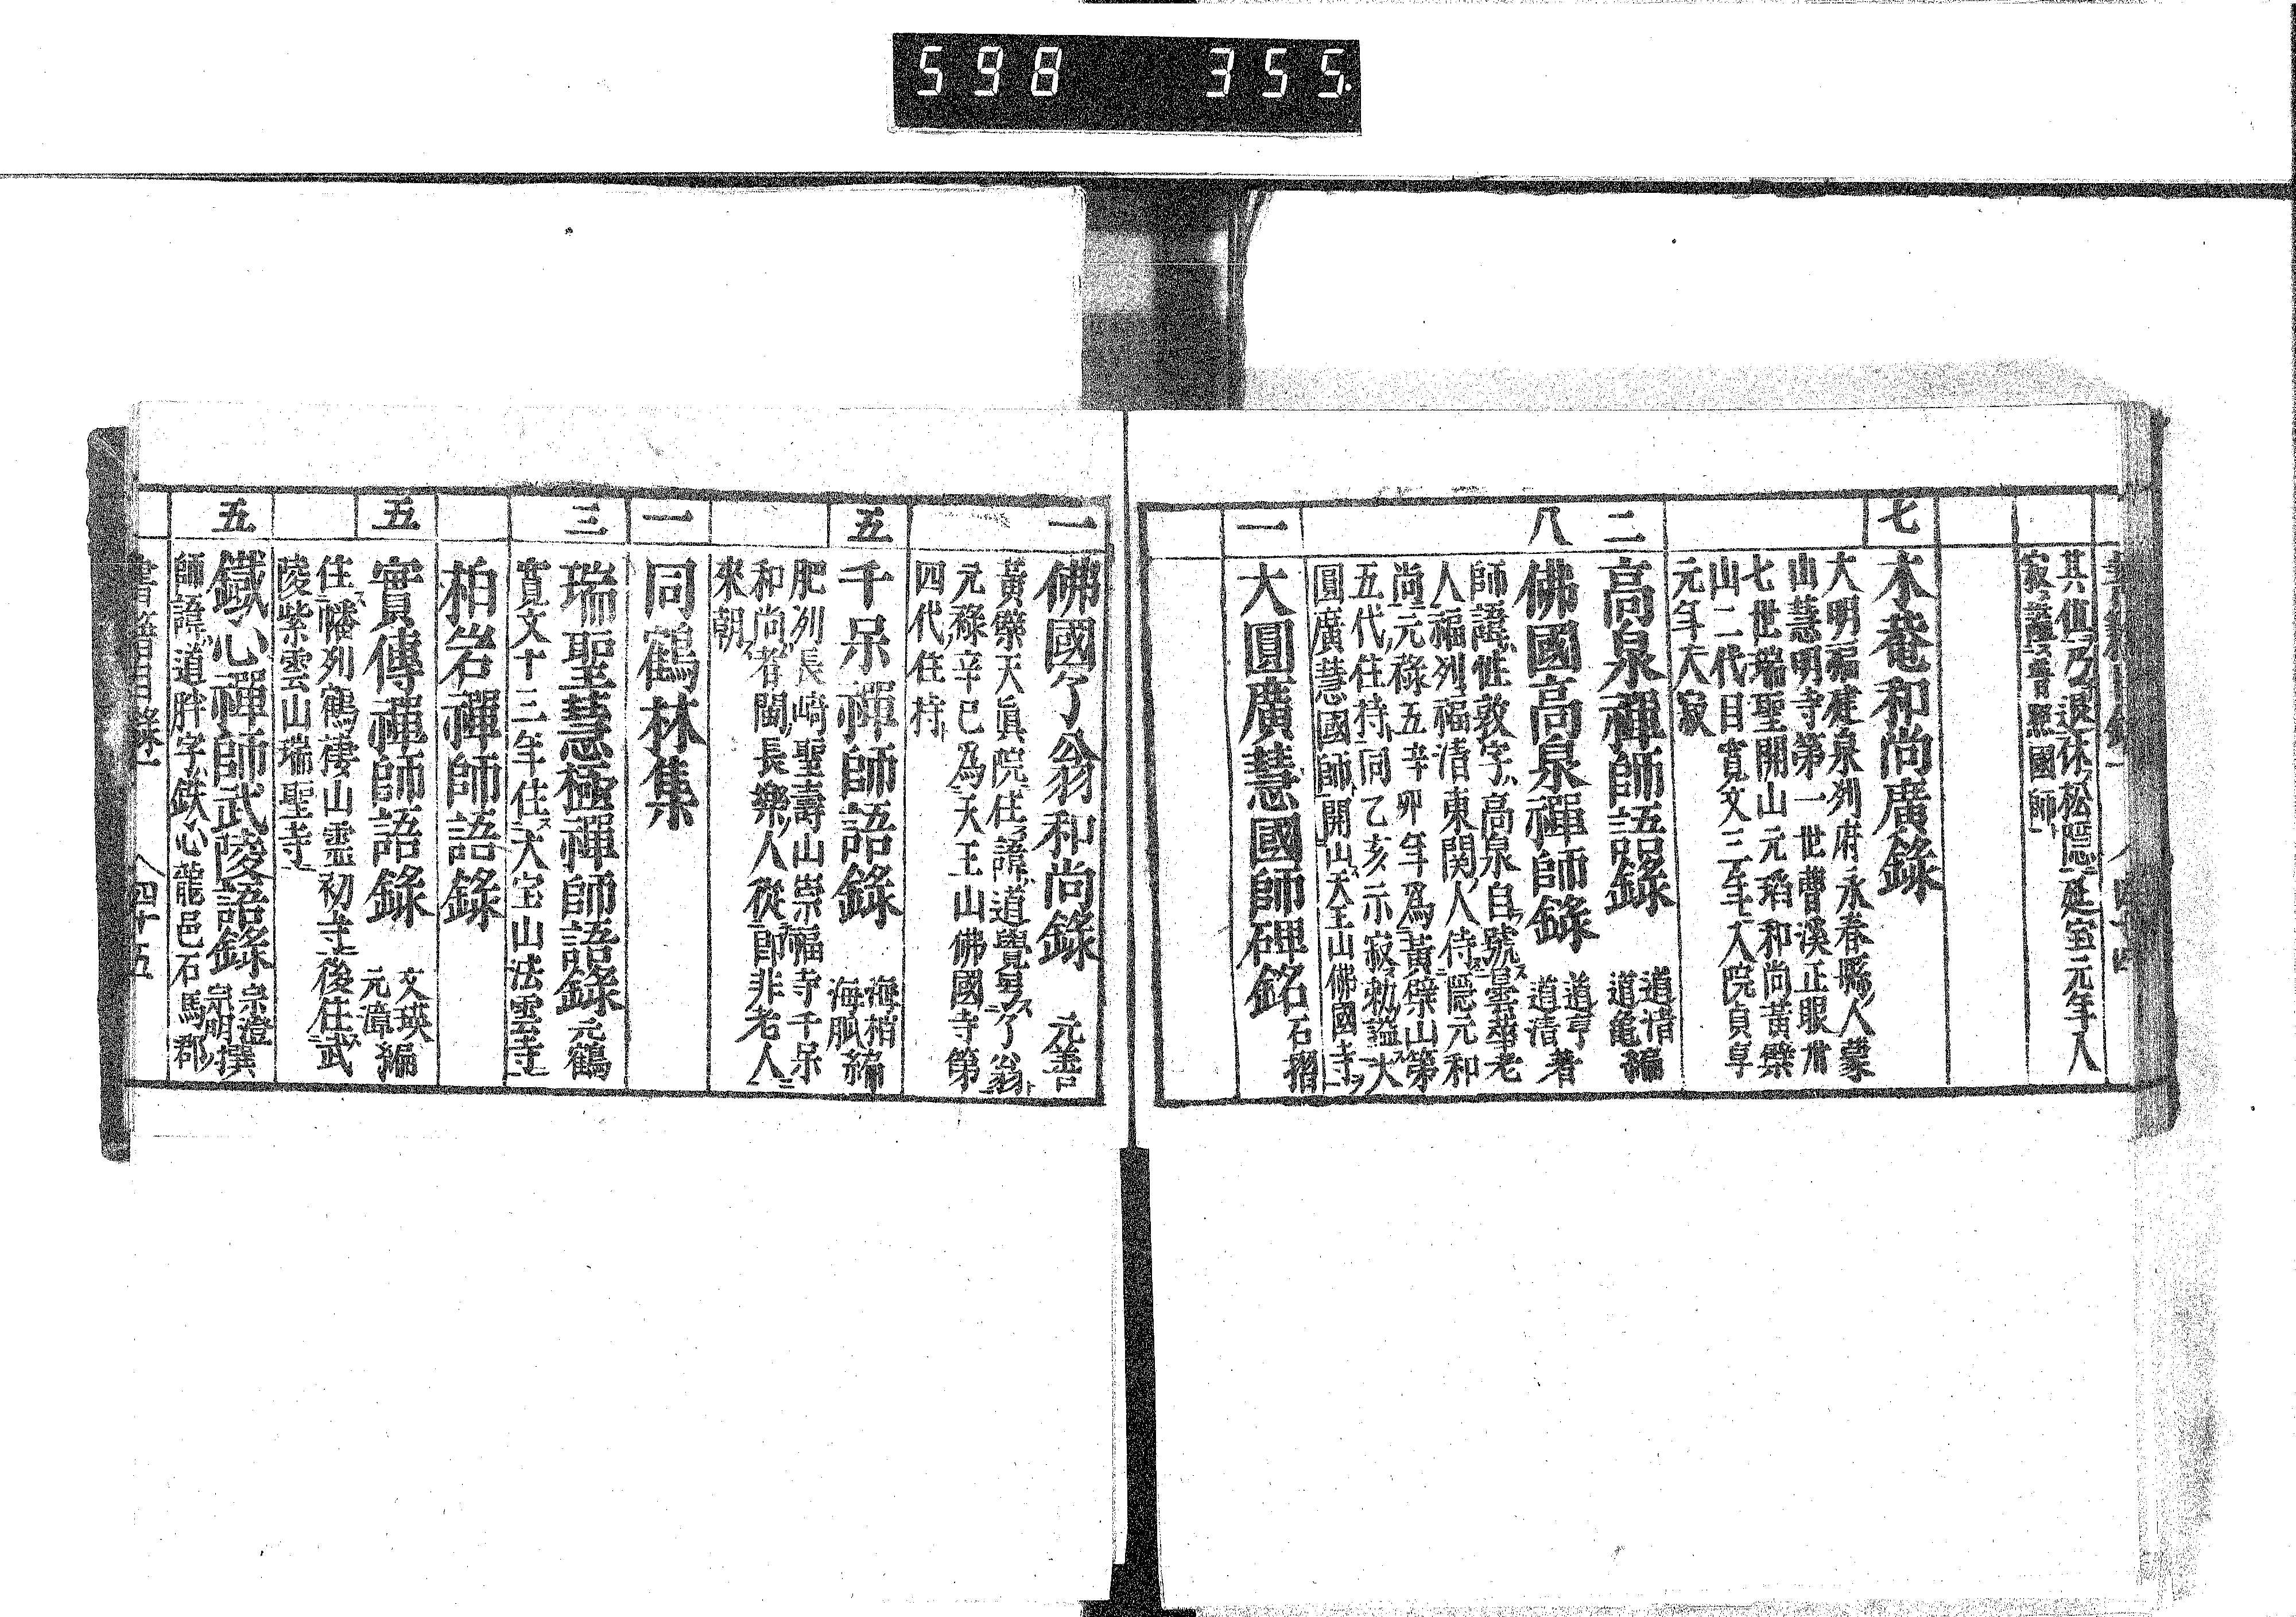 598 355
書籍目録一
其徂乃退休松隱延宝元年入
寂謚普照國師
七
木菴和尚廣錄
大明福建泉列府永春縣人蒙
山慧明寺第一世曹溪正眼
七世瑞聖開山元祖和尚黃檗
山二代目寛文三年入院貞享
元年大寂
二
高泉禪師語錄 道清 道亀 編
八
佛國高泉禪師錄 道亨 道清 著
師諱性敦字高泉自號曇華老
人福列福清東関人侍隱元和
尚元祿五辛卯年為黃檗山第
五代住持同乙亥示寂勅謚大
圓廣慧國師開山天王山佛國寺
一
大圓廣慧國師碑銘 石摺
一
佛國了翁和尚錄 元善
黃檗天眞院住諱道覺号了翁
元祿辛巳為天王山佛國寺第
四代住持
五
千呆禪師語錄 海梢 海胍 編
肥列長崎聖壽山崇福寺千呆
和尚者閩長樂人從即非老人
來朝
一
同鶴林集
三
瑞聖慧極禪師語錄 元鶴
寛文十三年住大宝山法雲寺
柏岩禪師語錄
五
實傳禪師語錄 文瑛 元漳 編
住幡列鶴棲山霊初寺後住武
陵紫雲山瑞聖寺
五
鐵心禪師武陵語錄 宗澄 宗明 撰
師諱道胖字鉄心龍邑石馬郡
書籍目錄一 四十五